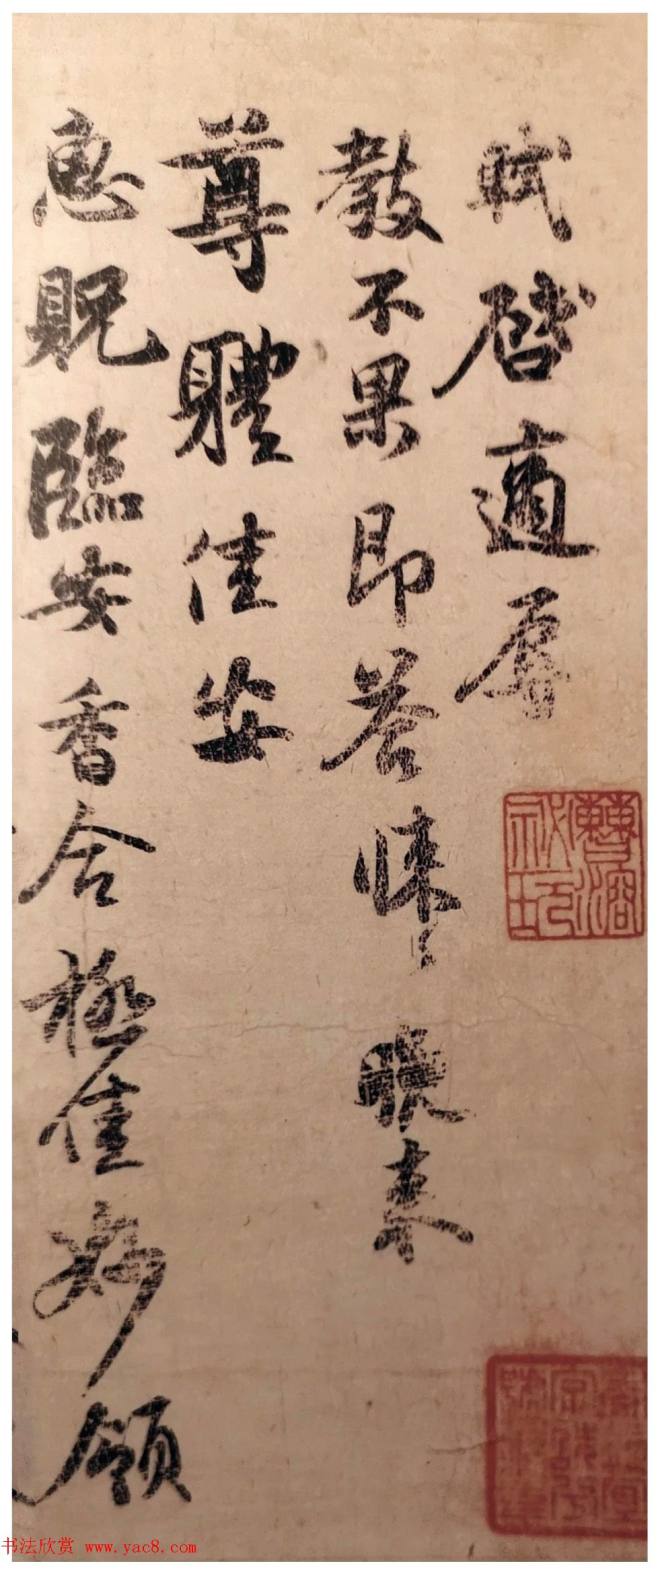 軾啓適辱
教不果即答悚悚晚來
尊體佳安
惠貺臨安香合極佳妙領
書法欣赏 www.yac8.com